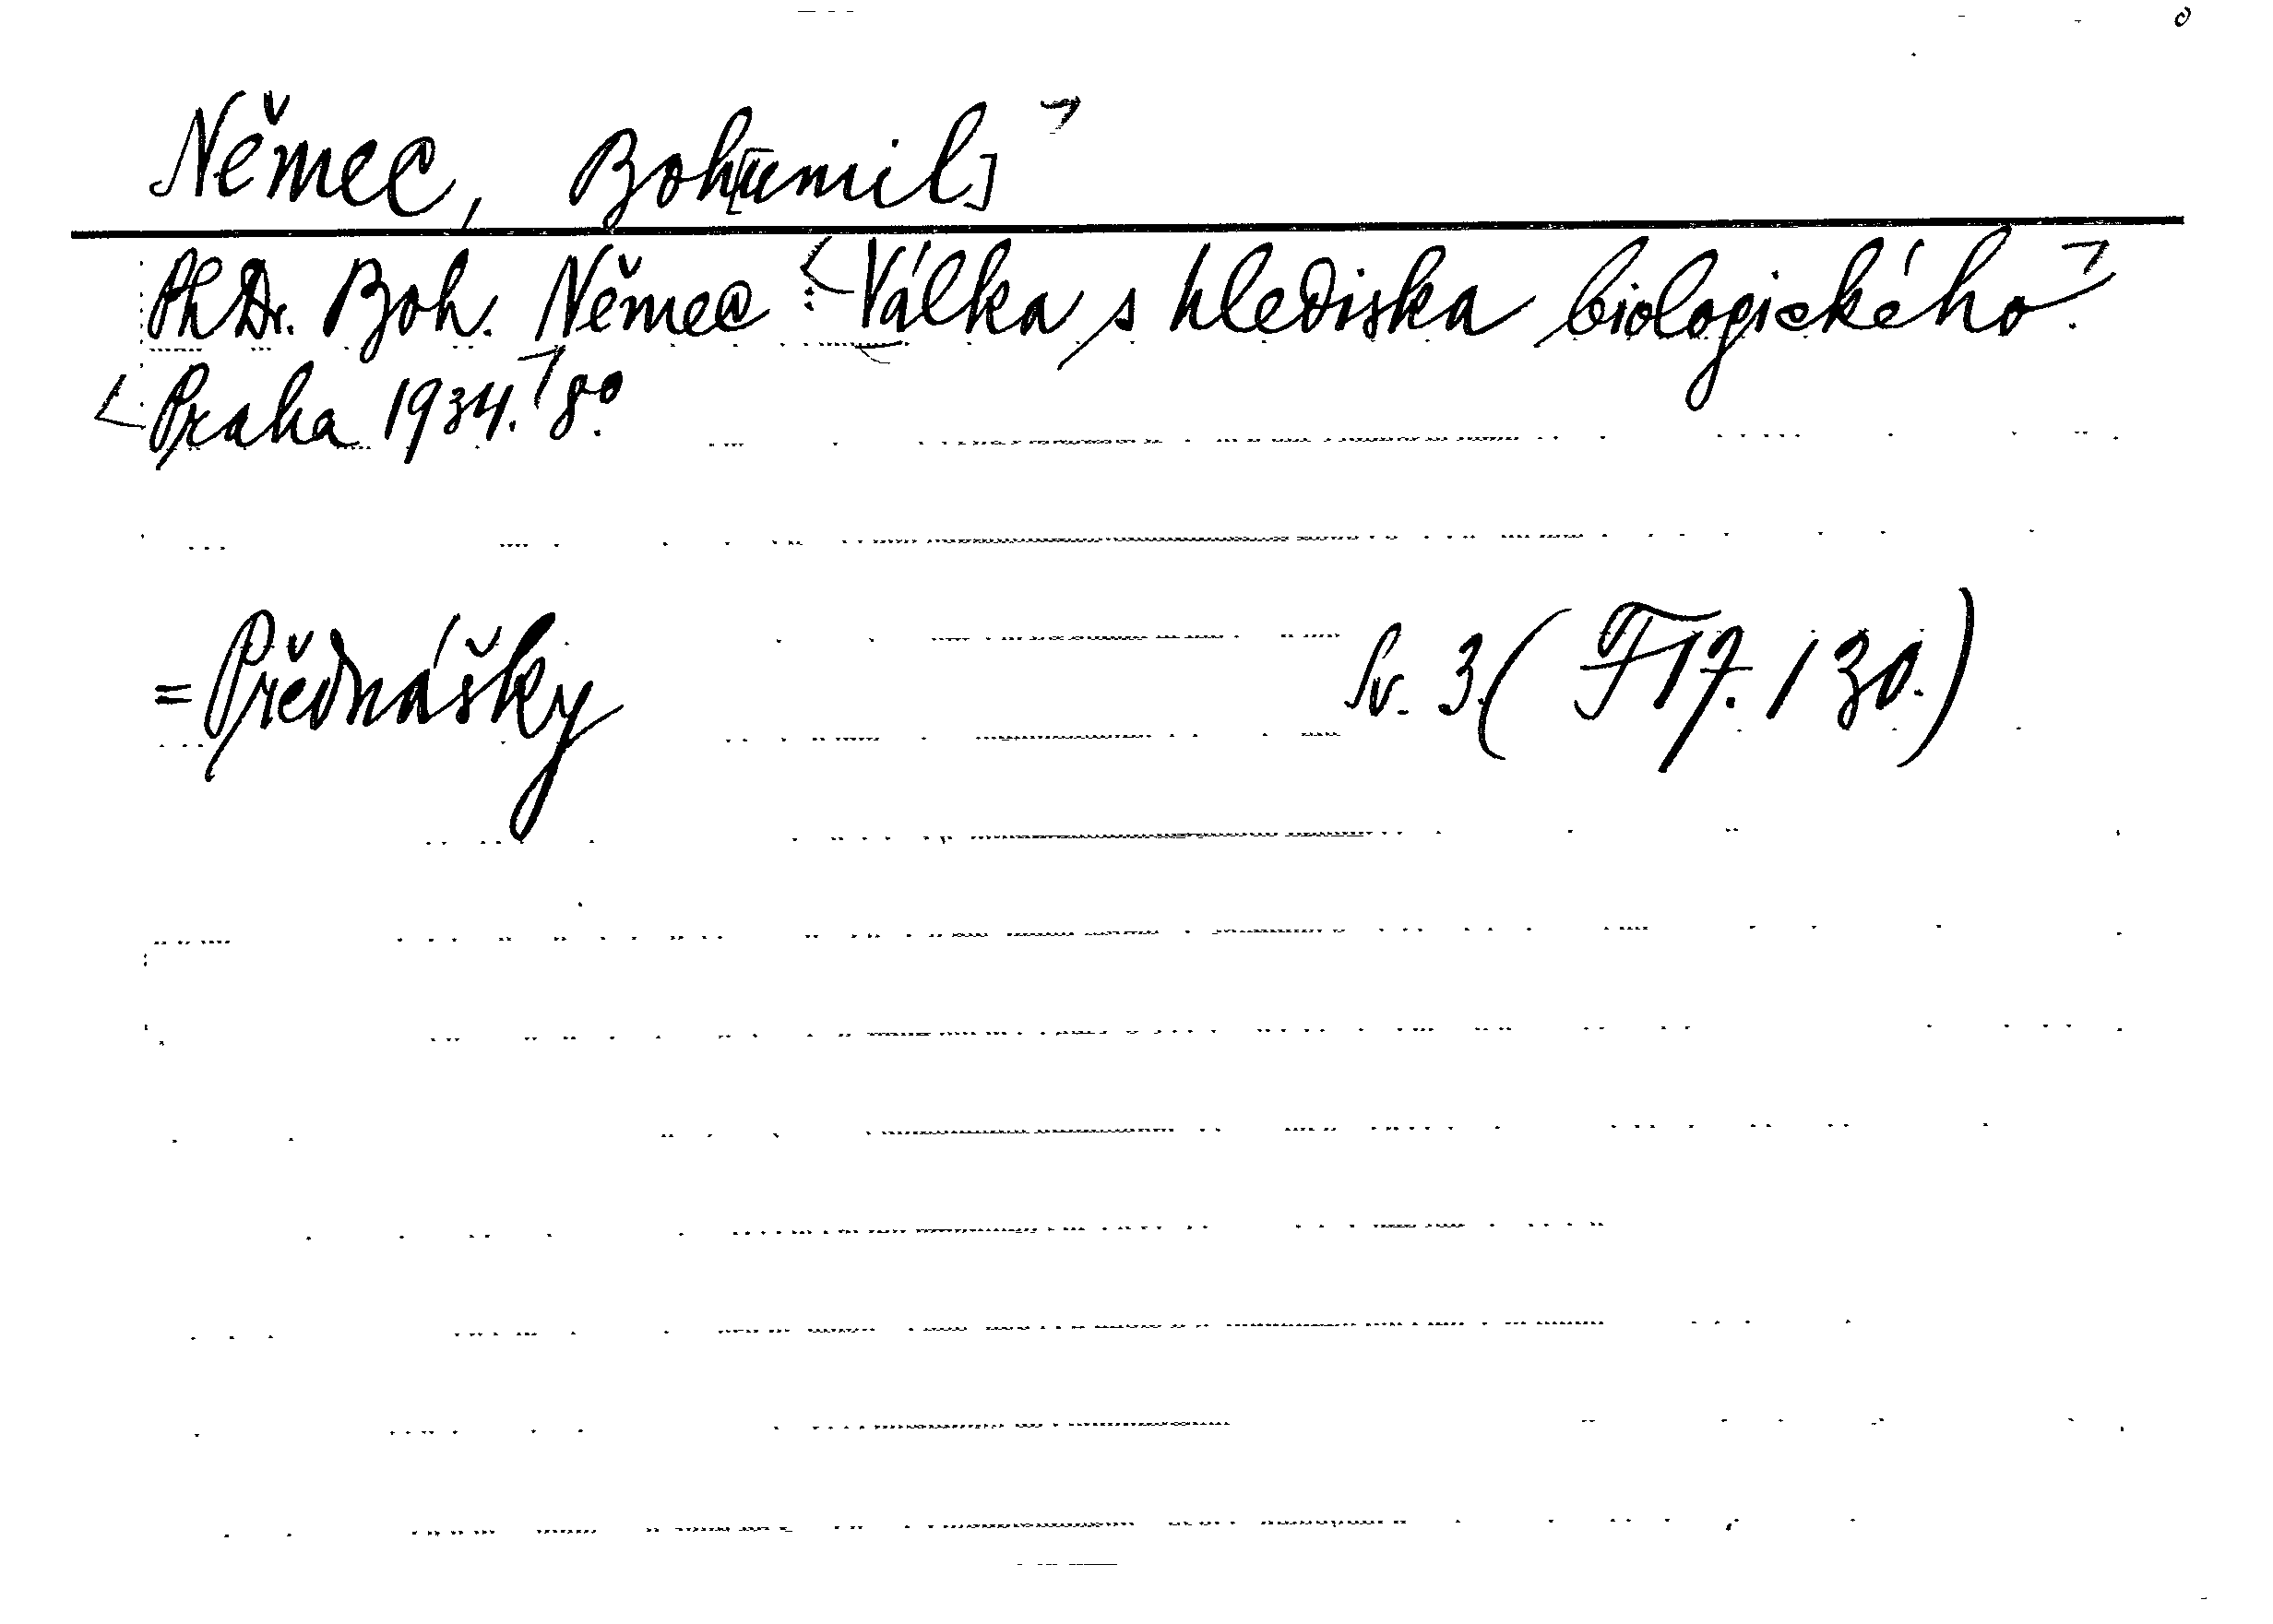 Němec, Boh[umil]
PhDr. Boh. Němec: Válka s hlediska biologického.
Praha 1934. 8°.
=Přednášky Sv. 3. (F 17. / 30.)